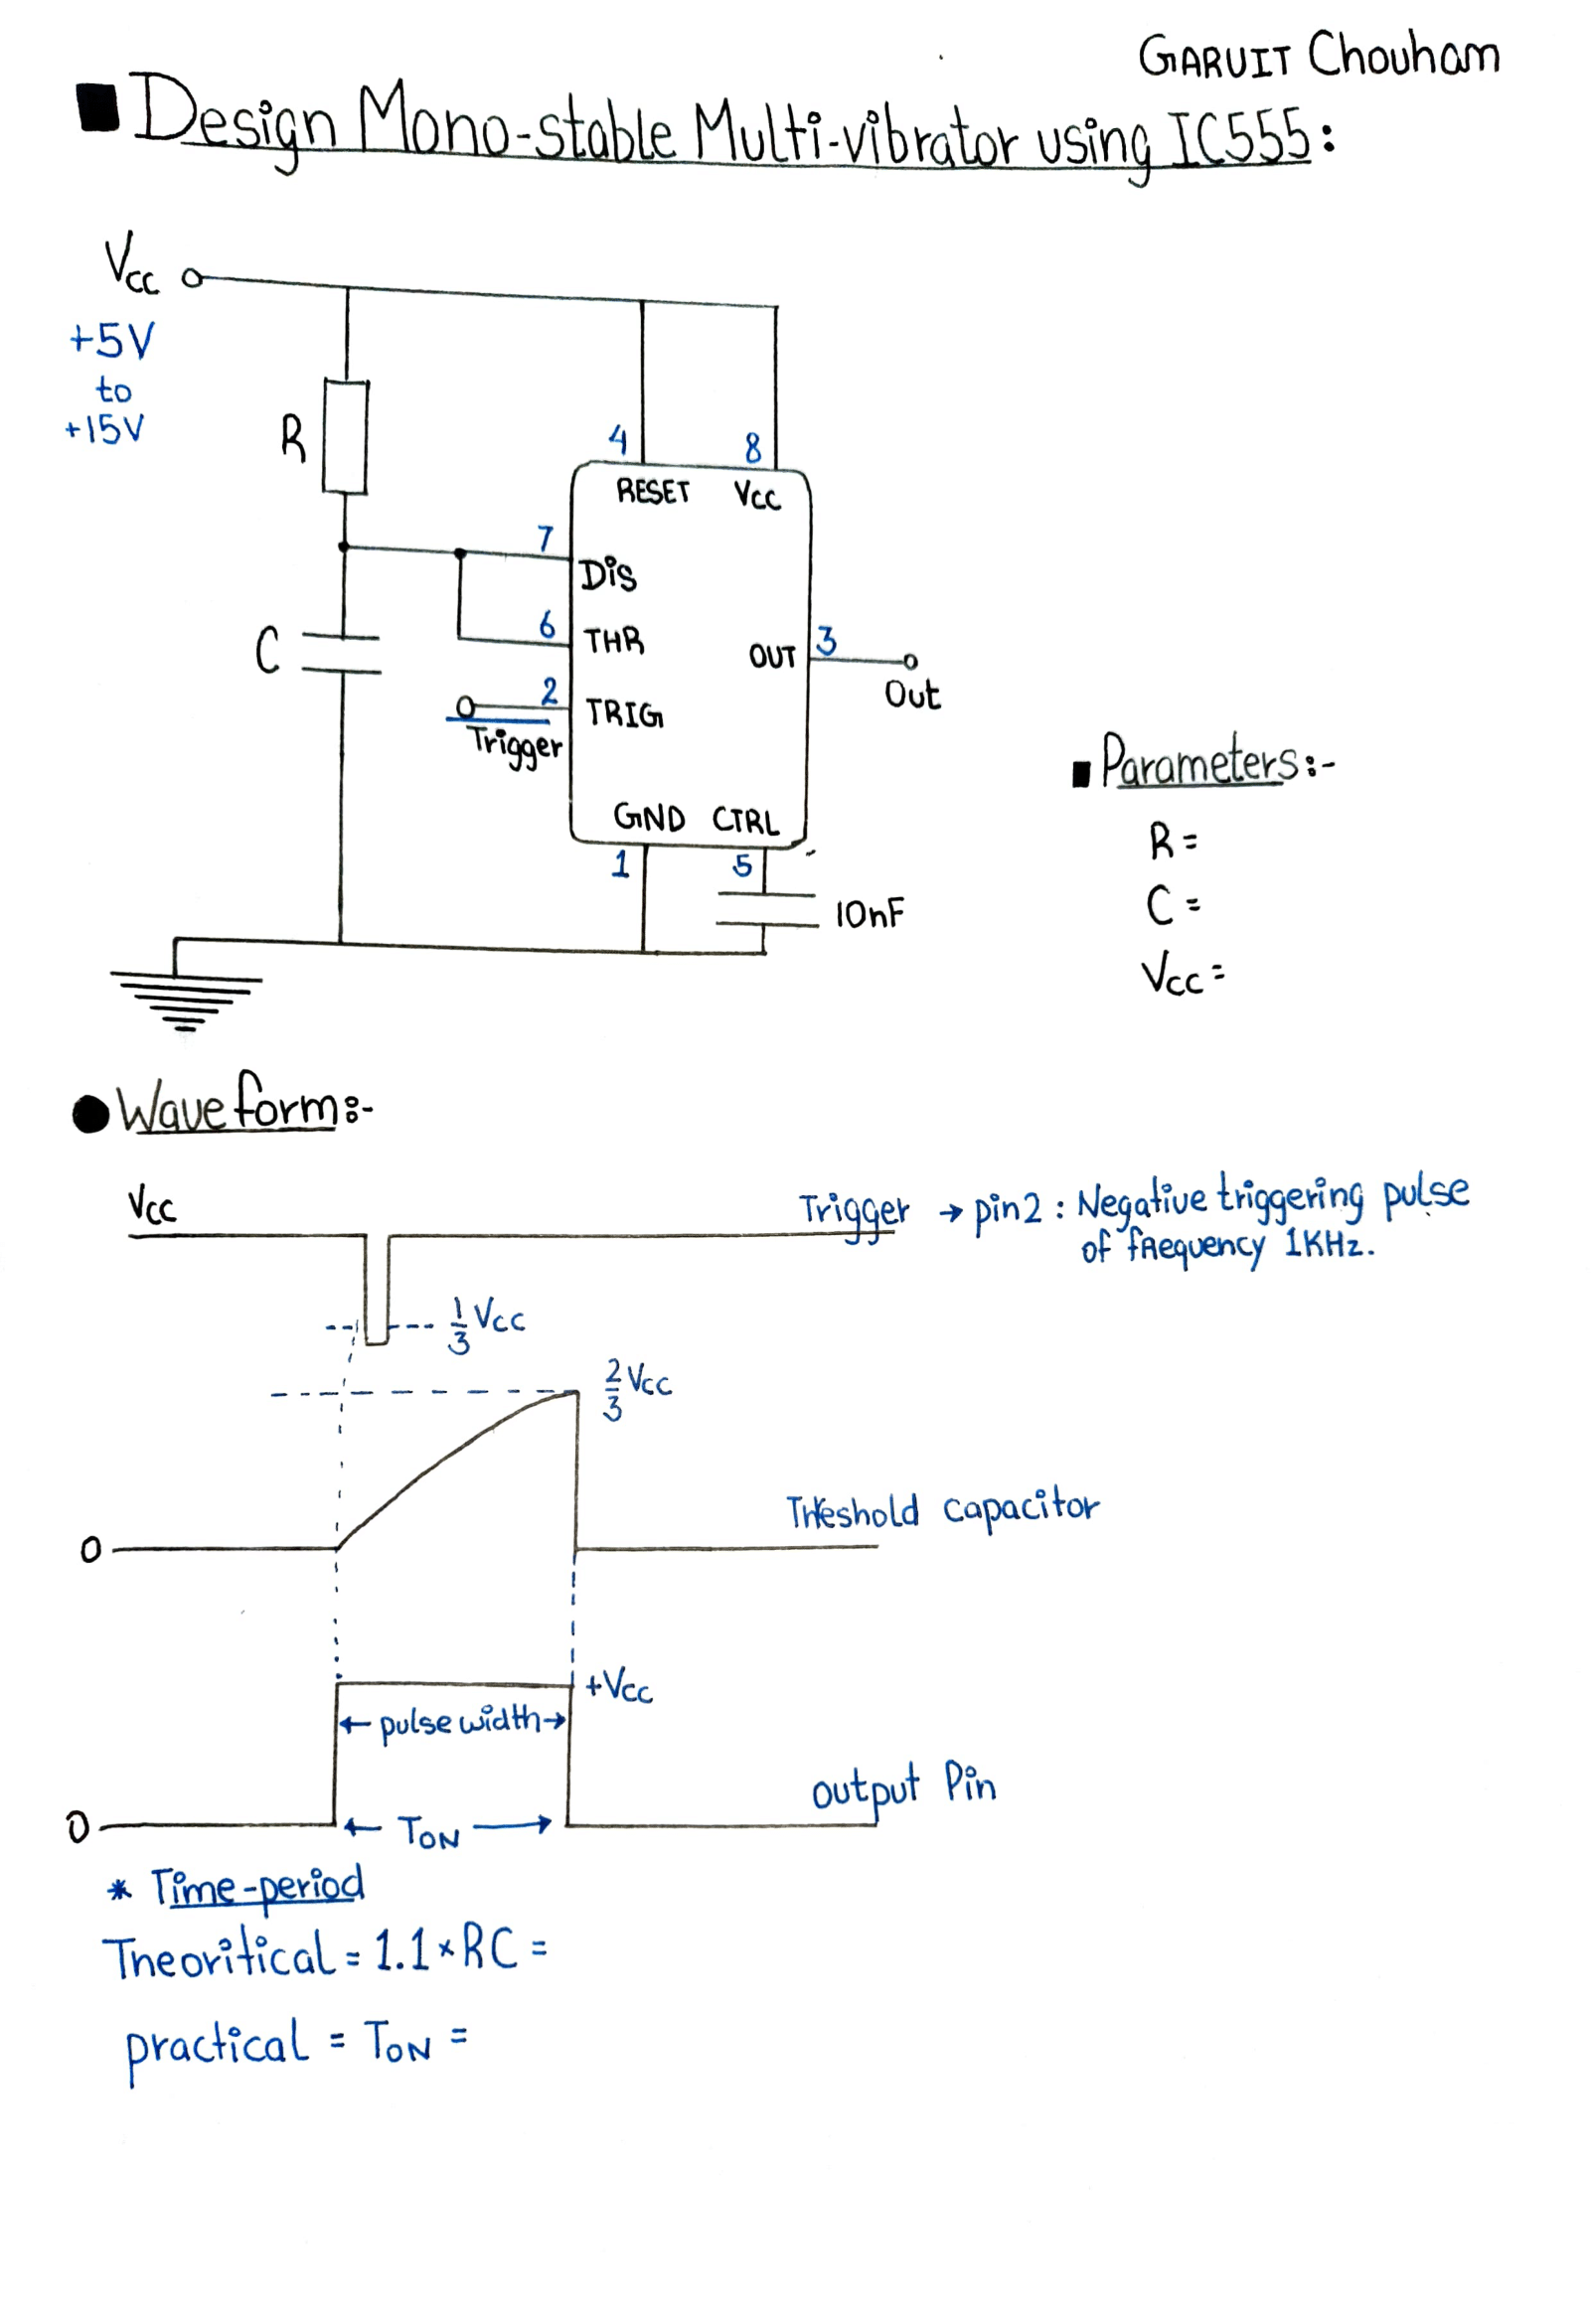 GARUIT Chouham
Design Mono-stable Multi-vibrator using IC555:
Vcc
+5V
to
+15V
R
4
8
RESET Vcc
7
Dis
6
THR
C
OUT
3
Out
2
TRIG
Trigger
GND CTRL
1
5
10nF
Parameters:-
R =
C =
Vcc =
Waveform:-
Vcc
Trigger → pin2 : Negative triggering pulse
of frequency 1KHz.
1/3 Vcc
2/3 Vcc
Threshold capacitor
0
+Vcc
← pulse width →
output Pin
0
← TON →
* Time-period
Theoritical = 1.1 × RC =
practical = TON =